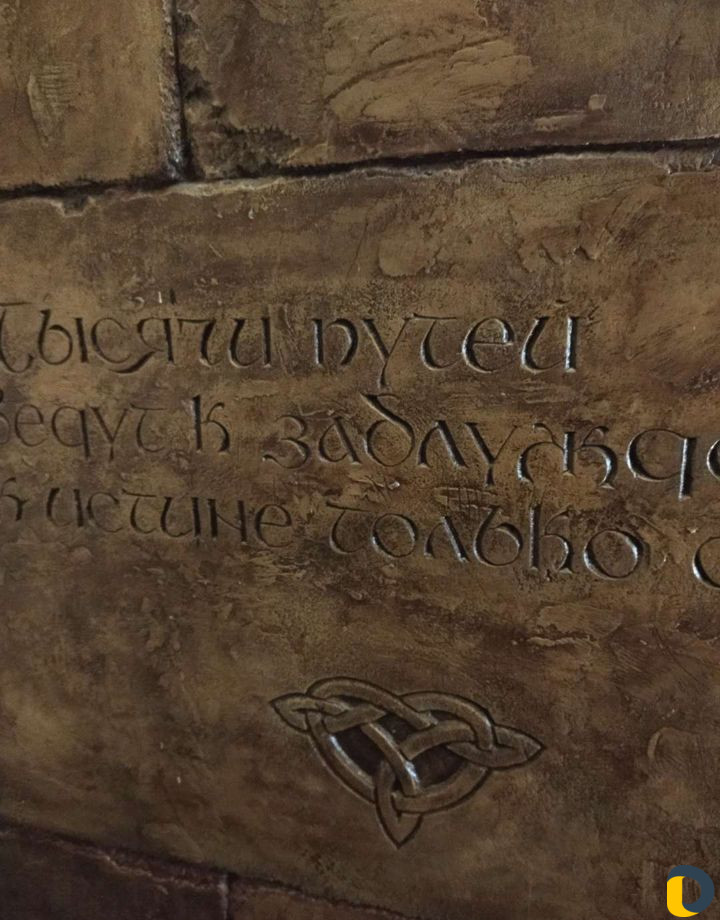 Тысячи путей
ведут к заблужде
к истине только о